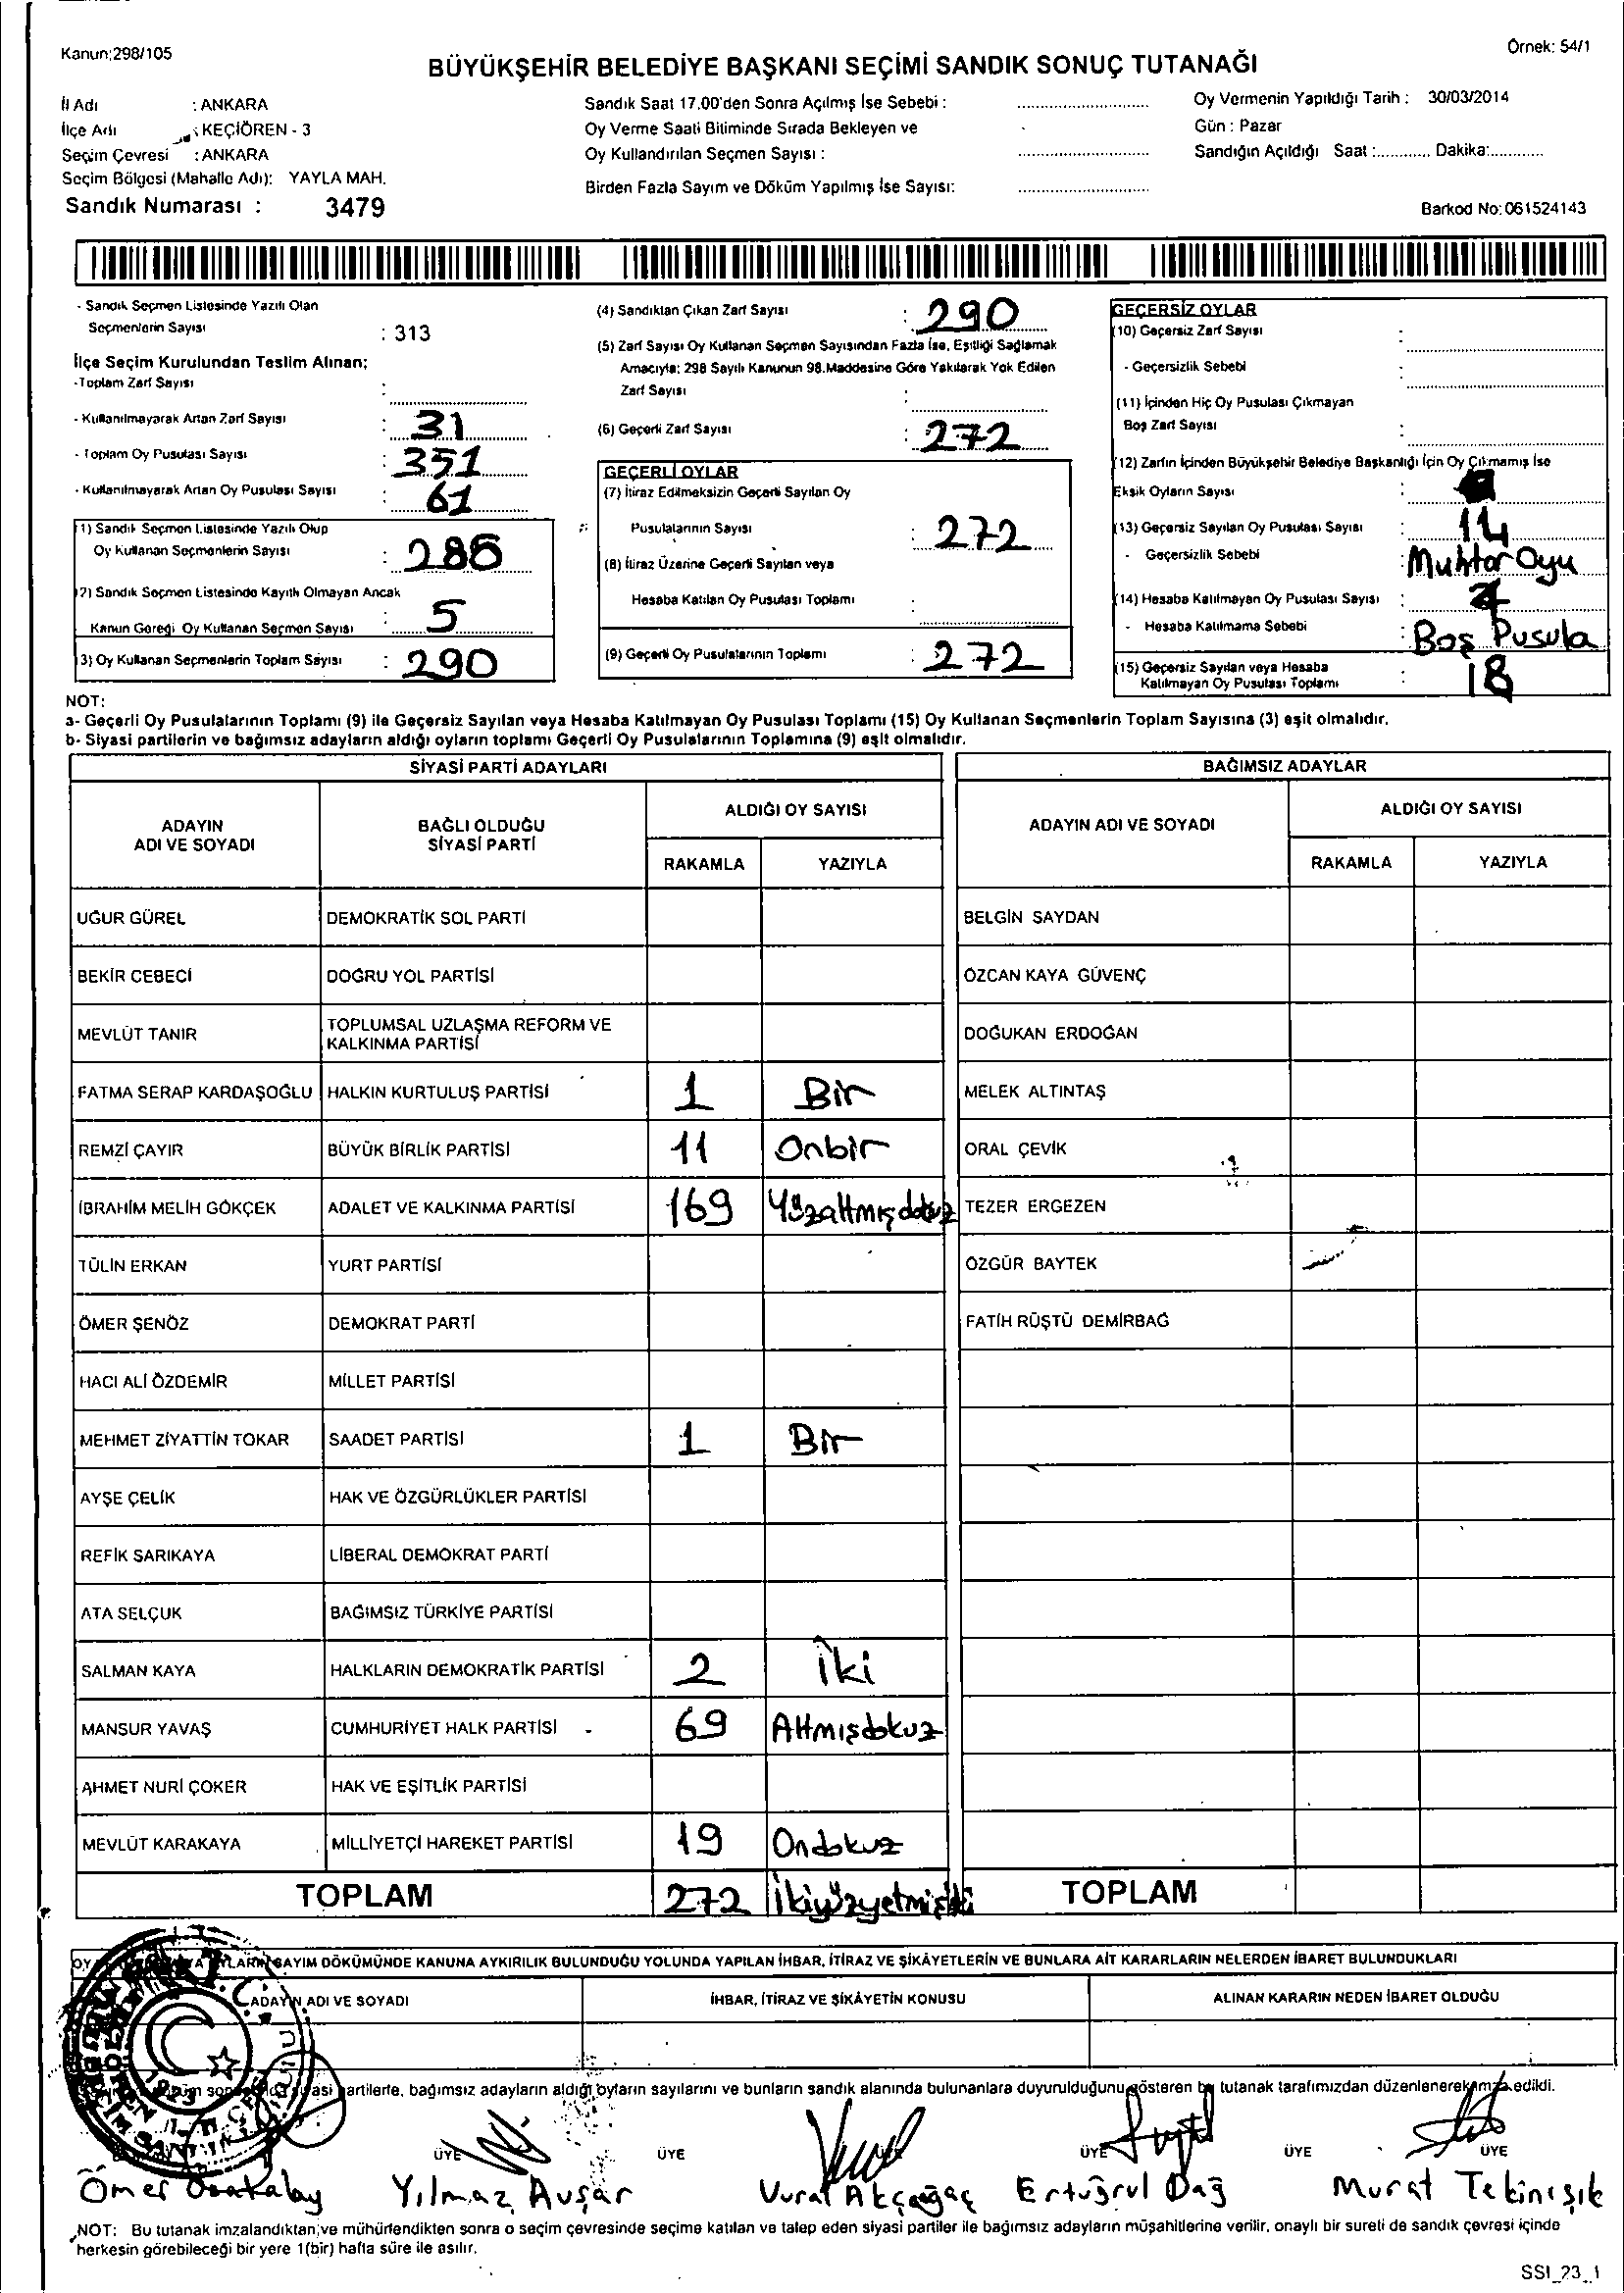 Kanun:298/105
Örnek: 54/1
BÜYÜKŞEHİR BELEDİYE BAŞKANI SEÇİMİ SANDIK SONUÇ TUTANAĞI
İl Adı : ANKARA
İlçe Adı : KEÇİÖREN - 3
Seçim Çevresi : ANKARA
Seçim Bölgesi (Mahalle Adı): YAYLA MAH.
Sandık Numarası : 3479
Sandık Saat 17.00'den Sonra Açılmış İse Sebebi :
Oy Verme Saati Bitiminde Sırada Bekleyen ve
Oy Kullandırılan Seçmen Sayısı :
Birden Fazla Sayım ve Döküm Yapılmış İse Sayısı:
Oy Vermenin Yapıldığı Tarih : 30/03/2014
Gün : Pazar
Sandığın Açıldığı Saat :............ Dakika:............
Barkod No:061524143
- Sandık Seçmen Listesinde Yazılı Olan
Seçmenlerin Sayısı : 313
İlçe Seçim Kurulundan Teslim Alınan;
-Toplam Zarf Sayısı :
- Kullanılmayarak Artan Zarf Sayısı : 31
- Toplam Oy Pusulası Sayısı : 351
- Kullanılmayarak Artan Oy Pusulası Sayısı : 61
(1) Sandık Seçmen Listesinde Yazılı Olup
Oy Kullanan Seçmenlerin Sayısı :
(2) Sandık Seçmen Listesinde Kayıtlı Olmayan Ancak
Kanun Gereği Oy Kullanan Seçmen Sayısı : 5
(3) Oy Kullanan Seçmenlerin Toplam Sayısı : 290
(4) Sandıktan Çıkan Zarf Sayısı : 290
(5) Zarf Sayısı Oy Kullanan Seçmen Sayısından Fazla İse, Eşitliği Sağlamak
Amacıyla; 298 Sayılı Kanunun 98.Maddesine Göre Yakılarak Yok Edilen
Zarf Sayısı :
(6) Geçerli Zarf Sayısı : 272
GEÇERLİ OYLAR
(7) İtiraz Edilmeksizin Geçerli Sayılan Oy
Pusulalarının Sayısı : 272
(8) İtiraz Üzerine Geçerli Sayılan veya
Hesaba Katılan Oy Pusulası Toplamı :
(9) Geçerli Oy Pusulalarının Toplamı : 272
GEÇERSİZ OYLAR
(10) Geçersiz Zarf Sayısı :
- Geçersizlik Sebebi :
(11) İçinden Hiç Oy Pusulası Çıkmayan
Boş Zarf Sayısı :
(12) Zarfın İçinden Büyükşehir Belediye Başkanlığı İçin Oy Çıkmamış İse
Eksik Oyların Sayısı :
(13) Geçersiz Sayılan Oy Pusulası Sayısı : 14
- Geçersizlik Sebebi : Muhtar Oyu
(14) Hesaba Katılmayan Oy Pusulası Sayısı :
- Hesaba Katılmama Sebebi : Boş Pusula
(15) Geçersiz Sayılan veya Hesaba
Katılmayan Oy Pusulası Toplamı : 18
NOT:
a- Geçerli Oy Pusulalarının Toplamı (9) ile Geçersiz Sayılan veya Hesaba Katılmayan Oy Pusulası Toplamı (15) Oy Kullanan Seçmenlerin Toplam Sayısına (3) eşit olmalıdır.
b- Siyasi partilerin ve bağımsız adayların aldığı oyların toplamı Geçerli Oy Pusulalarının Toplamına (9) eşit olmalıdır.
SİYASİ PARTİ ADAYLARI
ADAYIN
ADI VE SOYADI
BAĞLI OLDUĞU
SİYASİ PARTİ
ALDIĞI OY SAYISI
RAKAMLA YAZIYLA
UĞUR GÜREL DEMOKRATİK SOL PARTİ
BEKİR CEBECİ DOĞRU YOL PARTİSİ
MEVLÜT TANIR TOPLUMSAL UZLAŞMA REFORM VE
KALKINMA PARTİSİ
FATMA SERAP KARDAŞOĞLU HALKIN KURTULUŞ PARTİSİ 1 Bir
REMZİ ÇAYIR BÜYÜK BİRLİK PARTİSİ 11 Onbir
İBRAHİM MELİH GÖKÇEK ADALET VE KALKINMA PARTİSİ 169 Yüzaltmışdokuz
TÜLİN ERKAN YURT PARTİSİ
ÖMER ŞENÖZ DEMOKRAT PARTİ
HACI ALİ ÖZDEMİR MİLLET PARTİSİ
MEHMET ZİYATTİN TOKAR SAADET PARTİSİ 1 Bir
AYŞE ÇELİK HAK VE ÖZGÜRLÜKLER PARTİSİ
REFİK SARIKAYA LİBERAL DEMOKRAT PARTİ
ATA SELÇUK BAĞIMSIZ TÜRKİYE PARTİSİ
SALMAN KAYA HALKLARIN DEMOKRATİK PARTİSİ 2 İki
MANSUR YAVAŞ CUMHURİYET HALK PARTİSİ 69 Altmışdokuz
AHMET NURİ ÇOKER HAK VE EŞİTLİK PARTİSİ
MEVLÜT KARAKAYA MİLLİYETÇİ HAREKET PARTİSİ 19 Ondokuz
TOPLAM 272 İkiyüzyetmişiki
BAĞIMSIZ ADAYLAR
ADAYIN ADI VE SOYADI
ALDIĞI OY SAYISI
RAKAMLA YAZIYLA
BELGİN SAYDAN
ÖZCAN KAYA GÜVENÇ
DOĞUKAN ERDOĞAN
MELEK ALTINTAŞ
ORAL ÇEVİK
TEZER ERGEZEN
ÖZGÜR BAYTEK
FATİH RÜŞTÜ DEMİRBAĞ
TOPLAM
SAYIM DÖKÜMÜNDE KANUNA AYKIRILIK BULUNDUĞU YOLUNDA YAPILAN İHBAR, İTİRAZ VE ŞİKÂYETLERİN VE BUNLARA AİT KARARLARIN NELERDEN İBARET BULUNDUKLARI
ADAYIN ADI VE SOYADI İHBAR, İTİRAZ VE ŞİKÂYETİN KONUSU ALINAN KARARIN NEDEN İBARET OLDUĞU
partilerle, bağımsız adayların aldığı oyların sayılarını ve bunların sandık alanında bulunanlara duyurulduğunu gösteren bu tutanak tarafımızdan düzenlenerek imza edildi.
ÜYE ÜYE ÜYE ÜYE ÜYE
Ömer Yılmaz Avşar Vural Akçaağaç Ertuğrul Dağ Murat Tekinışık
NOT: Bu tutanak imzalandıktan ve mühürlendikten sonra o seçim çevresinde seçime katılan ve talep eden siyasi partiler ile bağımsız adayların müşahitlerine verilir, onaylı bir sureti de sandık çevresi içinde
herkesin görebileceği bir yere 1(bir) hafta süre ile asılır.
SSI_23_1